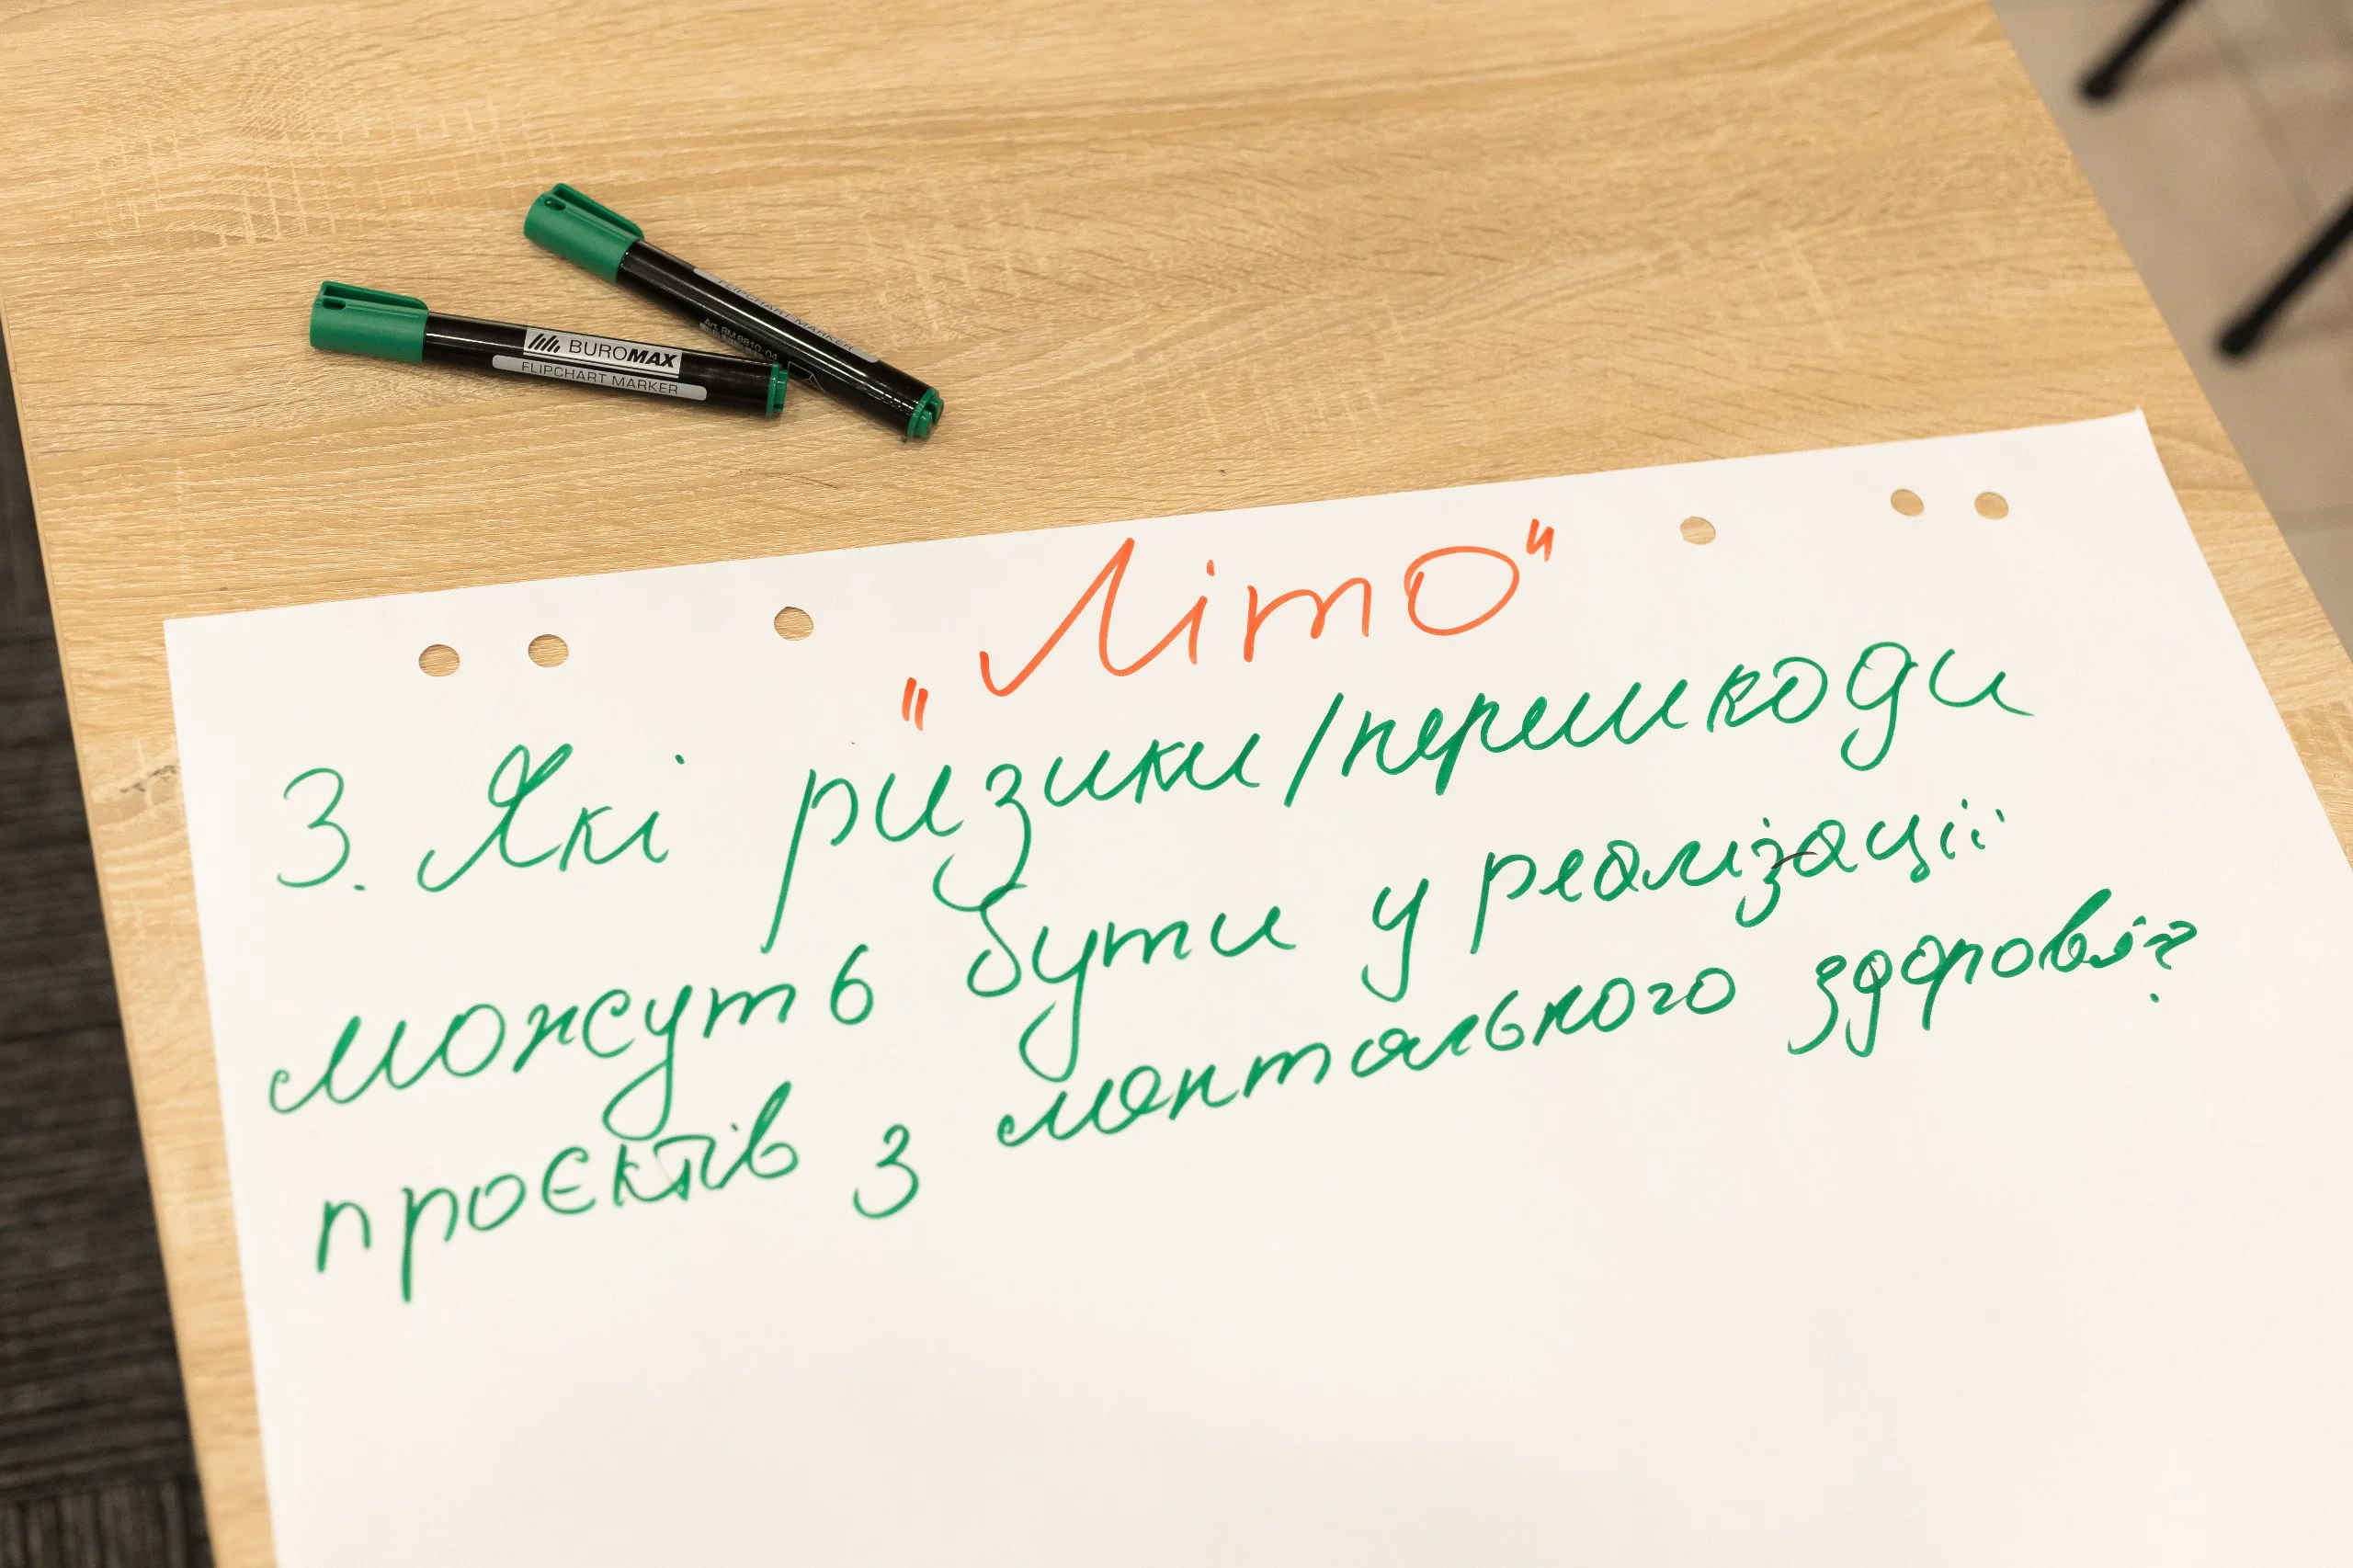 BUROMAX
FLIPCHART MARKER
FLIPCHART MARKER
„Літо“
3. Які ризики/перешкоди
можуть бути у реалізації
проєктів з ментального здоровія?